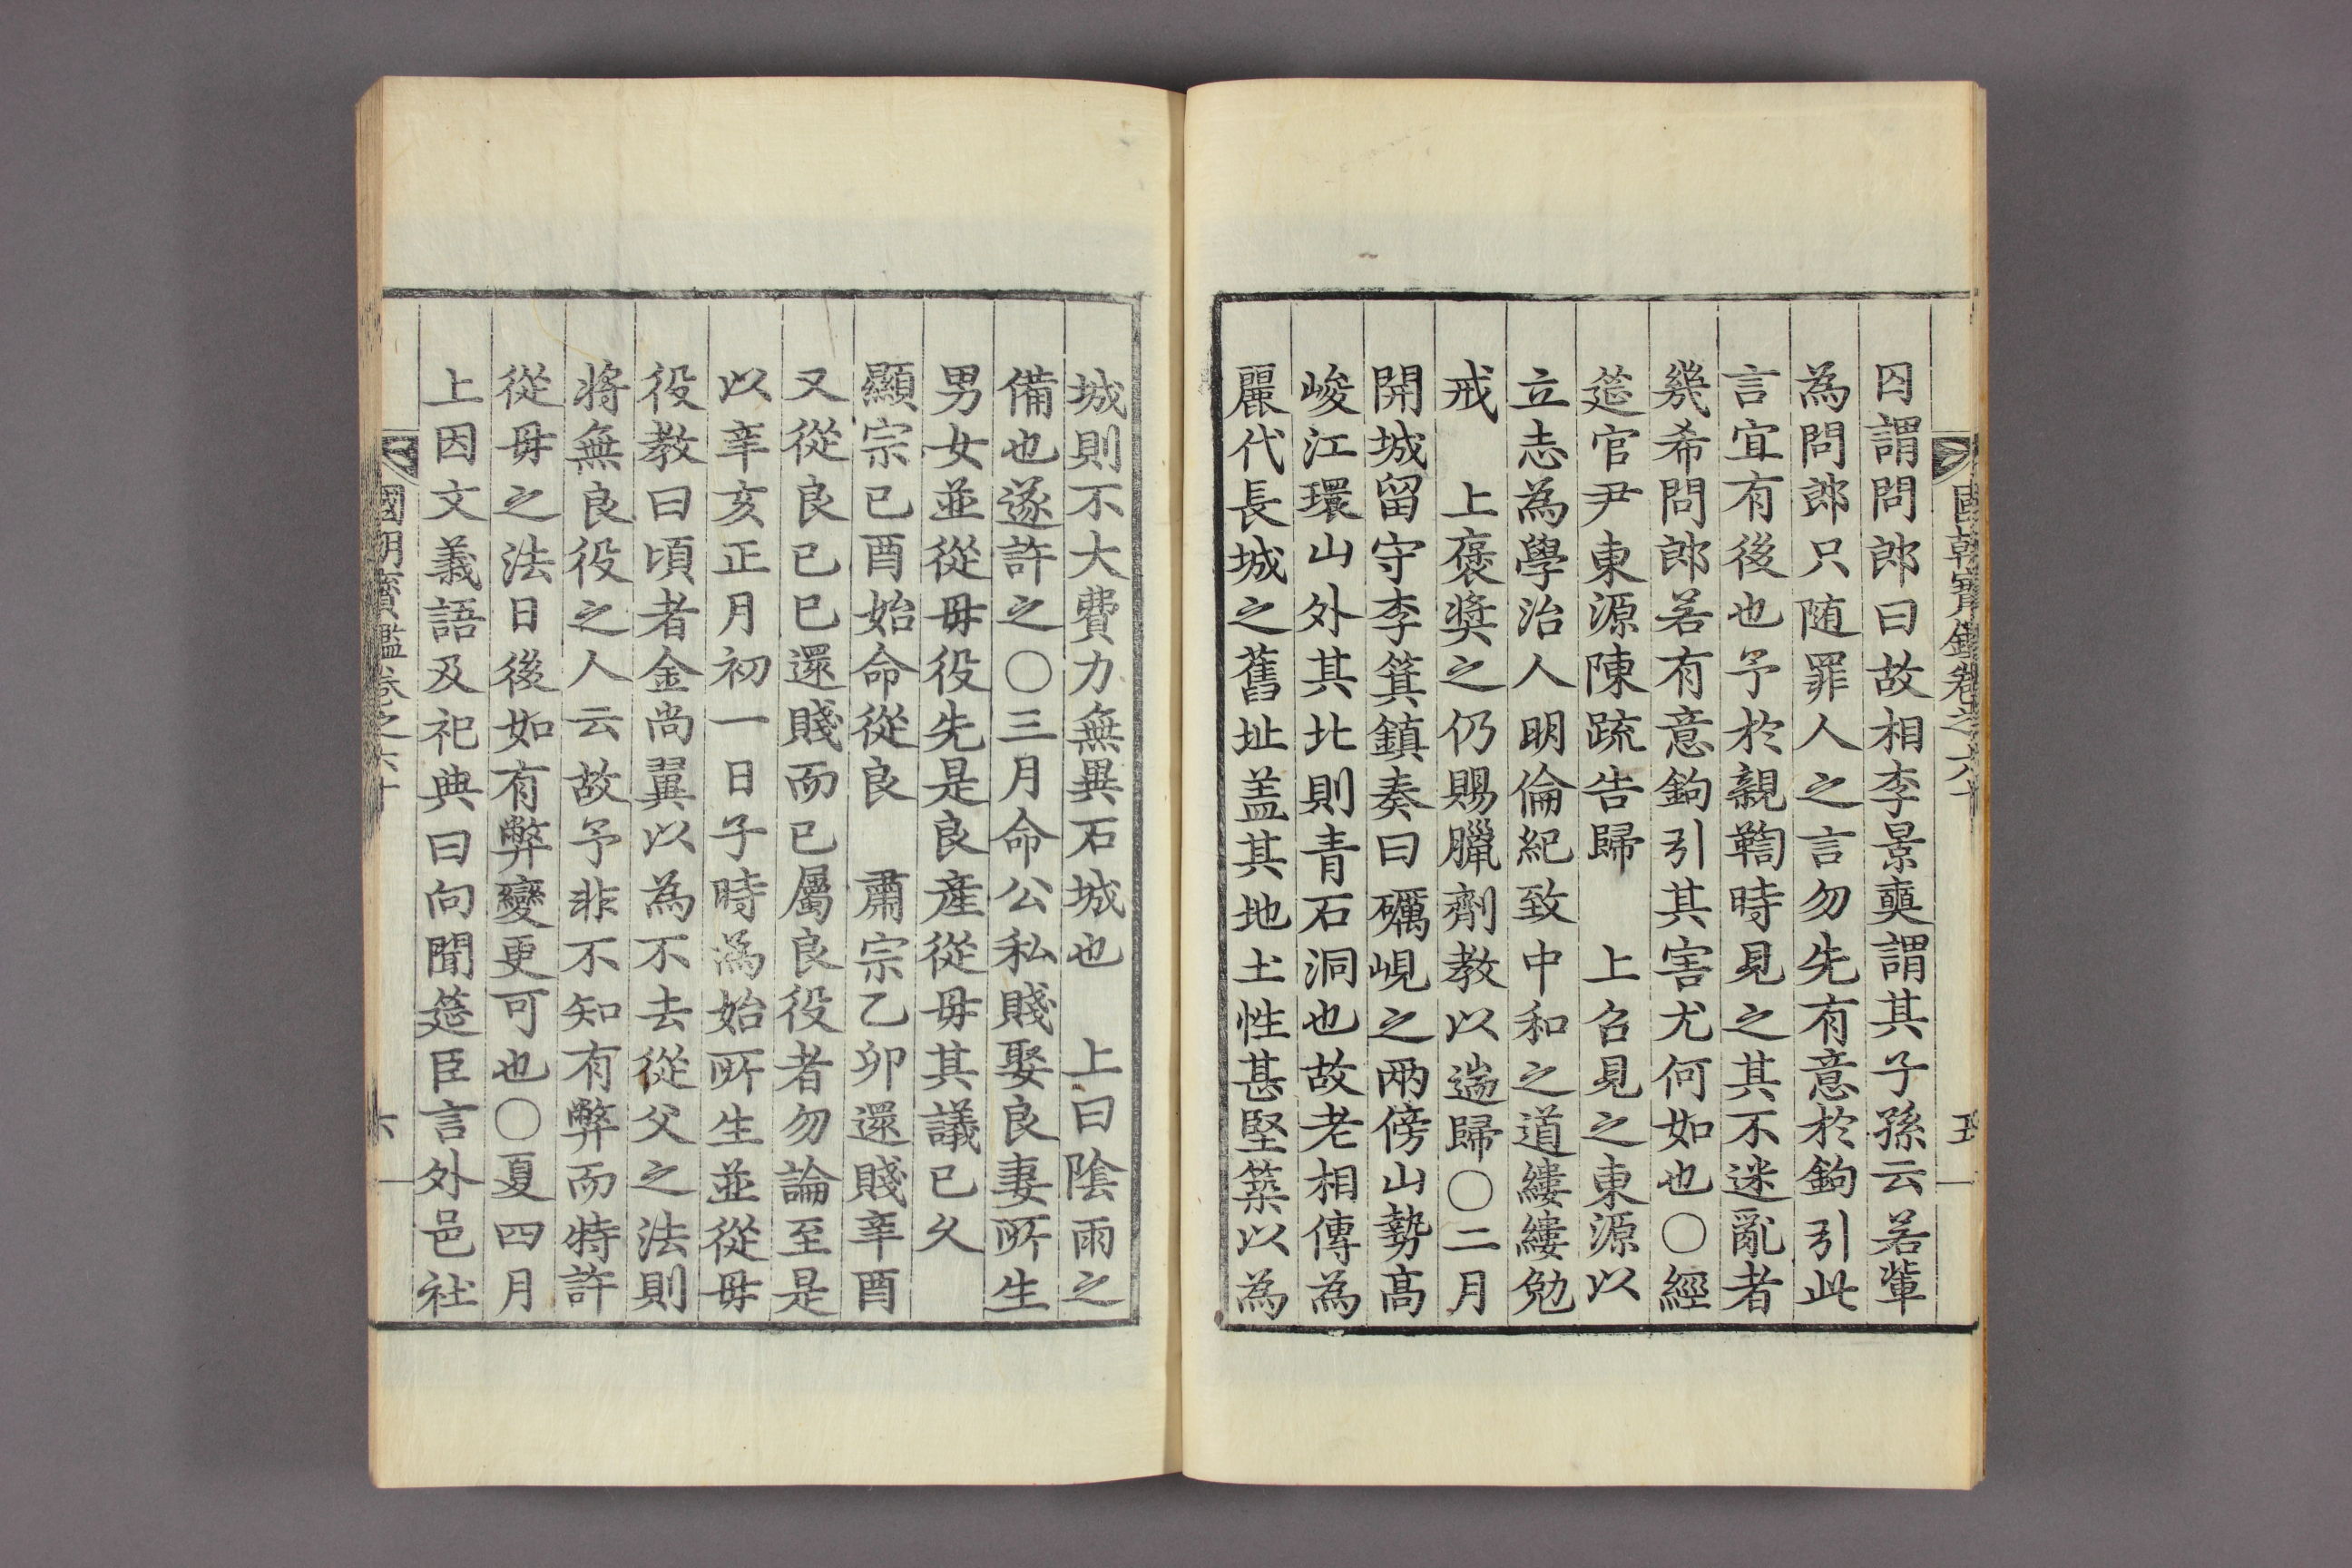 國朝寶鑑卷之六十 五
囚謂問郎曰故相李景奭謂其子孫云若輩
為問郎只随罪人之言勿先有意於鉤引此
言宜有後也予於親鞫時見之其不迷亂者
幾希問郎若有意鉤引其害尤何如也○經
筵官尹東源陳疏告歸 上召見之東源以
立志為學治人明倫紀致中和之道縷縷勉
戒 上褒奬之仍賜臘劑教以遄歸○二月
開城留守李箕鎮奏曰礪峴之兩傍山勢髙
峻江環山外其北則青石洞也故老相傳為
麗代長城之舊址盖其地土性甚堅築以為
城則不大費力無異石城也 上曰陰雨之
備也遂許之○三月命公私賤娶良妻所生
男女並從母役先是良産從母其議已久
顯宗已酉始命從良 肅宗乙卯還賤辛酉
又從良已巳還賤而已屬良役者勿論至是
以辛亥正月初一日子時為始所生並從母
役教曰頃者金尚翼以為不去從父之法則
將無良役之人云故予非不知有弊而特許
從母之法日後如有弊變更可也○夏四月
上因文義語及祀典曰向聞筵臣言外邑社
國朝寶鑑卷之六十 六